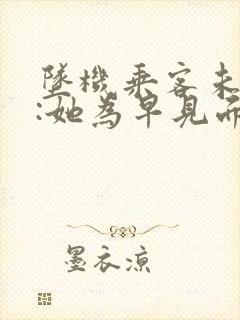 墜機乘客未
:她為早見
墨衣涼